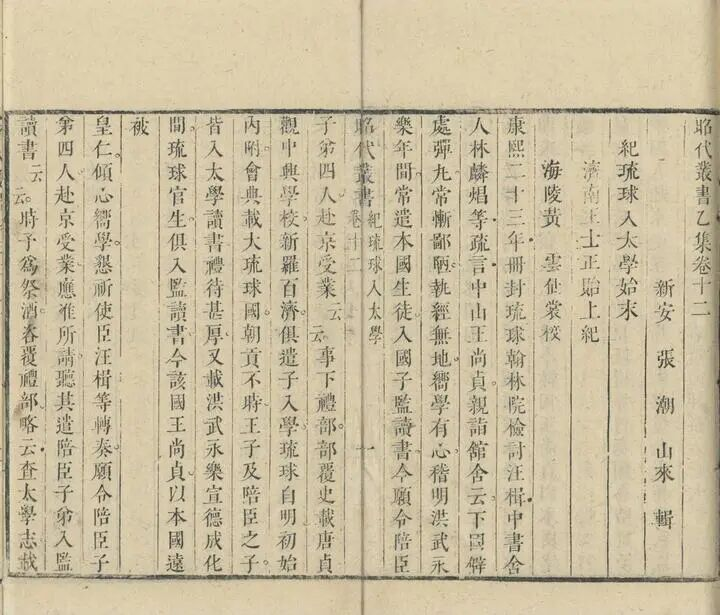 昭代叢書乙集卷十二
新安 張 潮 山來 輯
紀琉球入太學始末
濟南王士正貽上紀
海陵黃 雲仙裳校
康熙二十三年冊封琉球翰林院檢討汪楫中書舍
人林麟焻等疏言中山王尚貞親詣舘舍云下國僻
處彈九常慚鄙陋執經無地嚮學有心稽明洪武永
樂年間常遣本國生徒入國子監讀書今願令陪臣
昭代叢書 卷十二 紀琉球入太學 一
子弟四人赴京受業云云事下禮部部覆史載唐貞
觀中興學校新羅百濟俱遣子入學琉球自明初始
內附會典載大琉球國朝貢不時王子及陪臣之子
皆入太學讀書禮待甚厚又載洪武永樂宣德成化
間琉球官生俱入監讀書今該國王尚貞以本國遠
被
皇仁傾心嚮學懇祈使臣汪楫等轉奏願令陪臣子
弟四人赴京受業應准所請聽其遣陪臣子弟入監
讀書云云時予爲祭酒咨覆禮部略云查太學志載